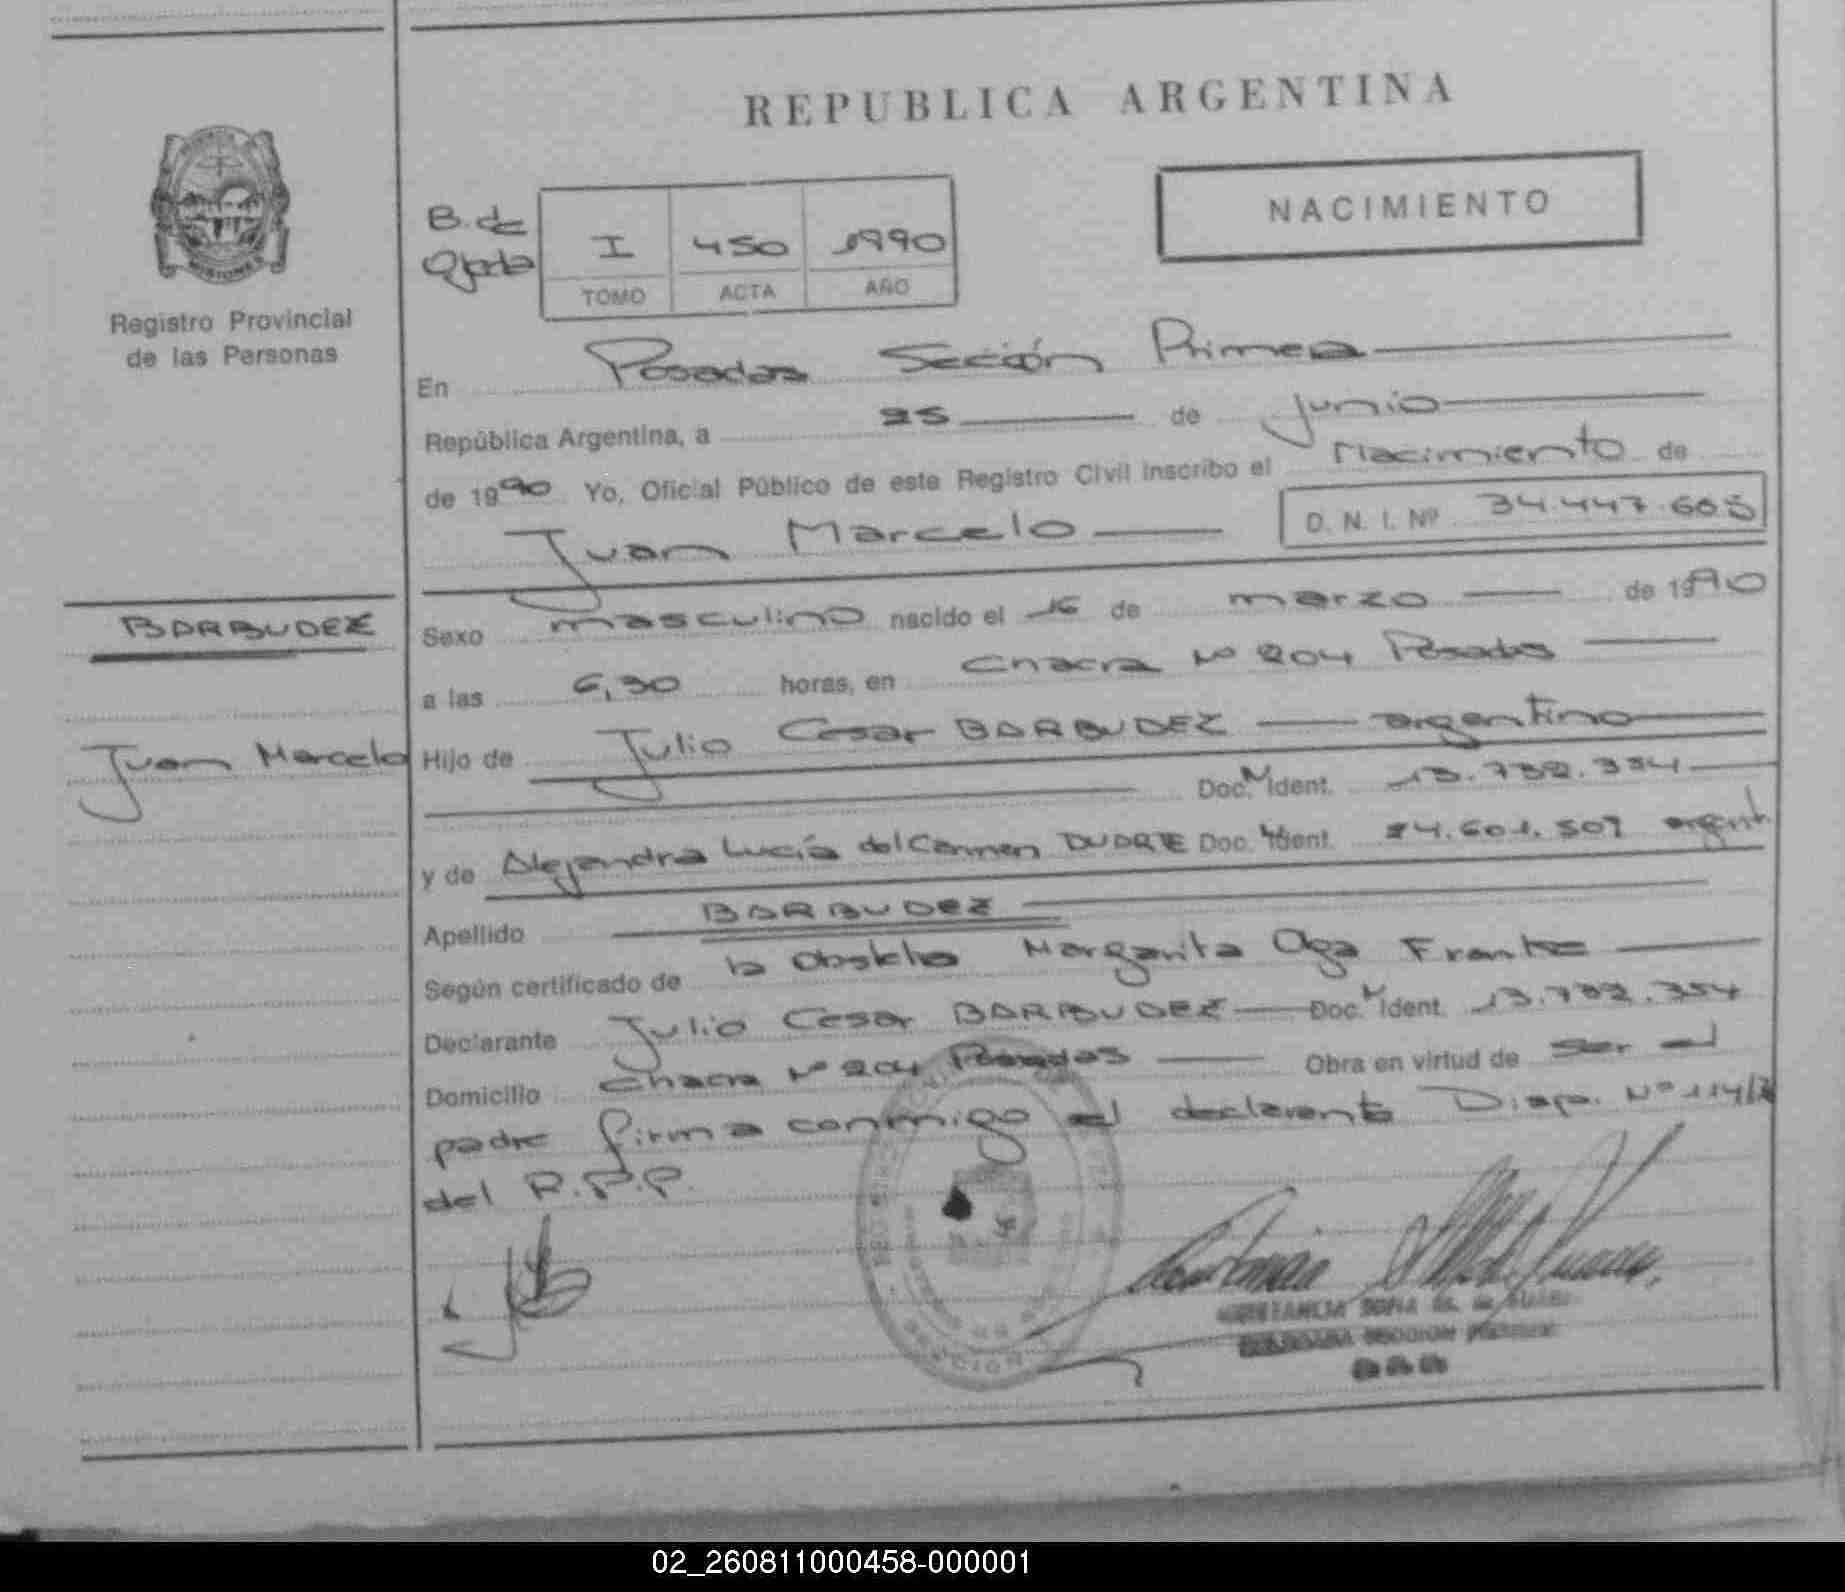 REPUBLICA ARGENTINA
NACIMIENTO
B. de
I 450 1990
TOMO ACTA AÑO
MISIONES
Registro Provincial
de las Personas
En Posadas Sección Primera
República Argentina, a 25 de junio
de 1990 Yo, Oficial Público de este Registro Civil inscribo el Nacimiento de
Juan Marcelo D. N. I. Nº 34.447.605
BARBUDEZ
Sexo masculino nacido el 16 de marzo de 1990
a las 6,30 horas, en Chacra Nº 204 Posadas
Juan Marcelo
Hijo de Julio Cesar BARBUDEZ argentino
Doc. Ident. 13.732.354
y de Alejandra Lucía del Carmen DUARTE Doc. Ident. 24.601.507
Apellido BARBUDEZ
Según certificado de la Margarita Oga
Declarante Julio Cesar BARBUDEZ Doc. Ident. 13.732.354
Domicilio Chacra Nº 204 Posadas Obra en virtud de ser el
padre firma conmigo el declarante Disp. Nº 114/
del R.P.P.
02_260811000458-000001